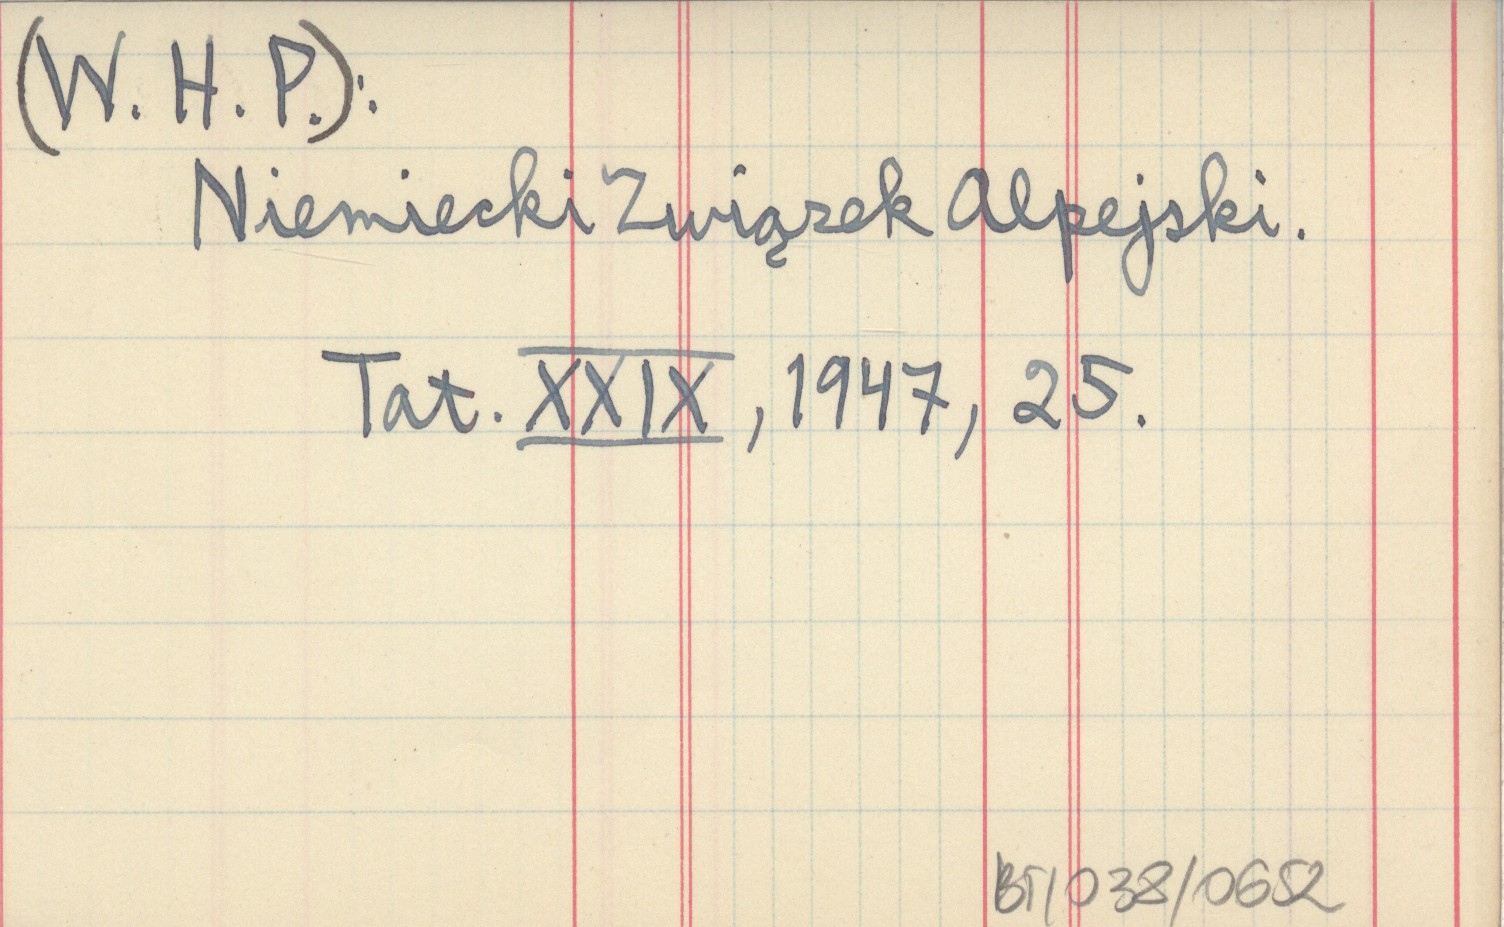 (W. H. P.):
Niemiecki Związek Alpejski.
Tat. XXIX, 1947, 25.
BT/038/0652